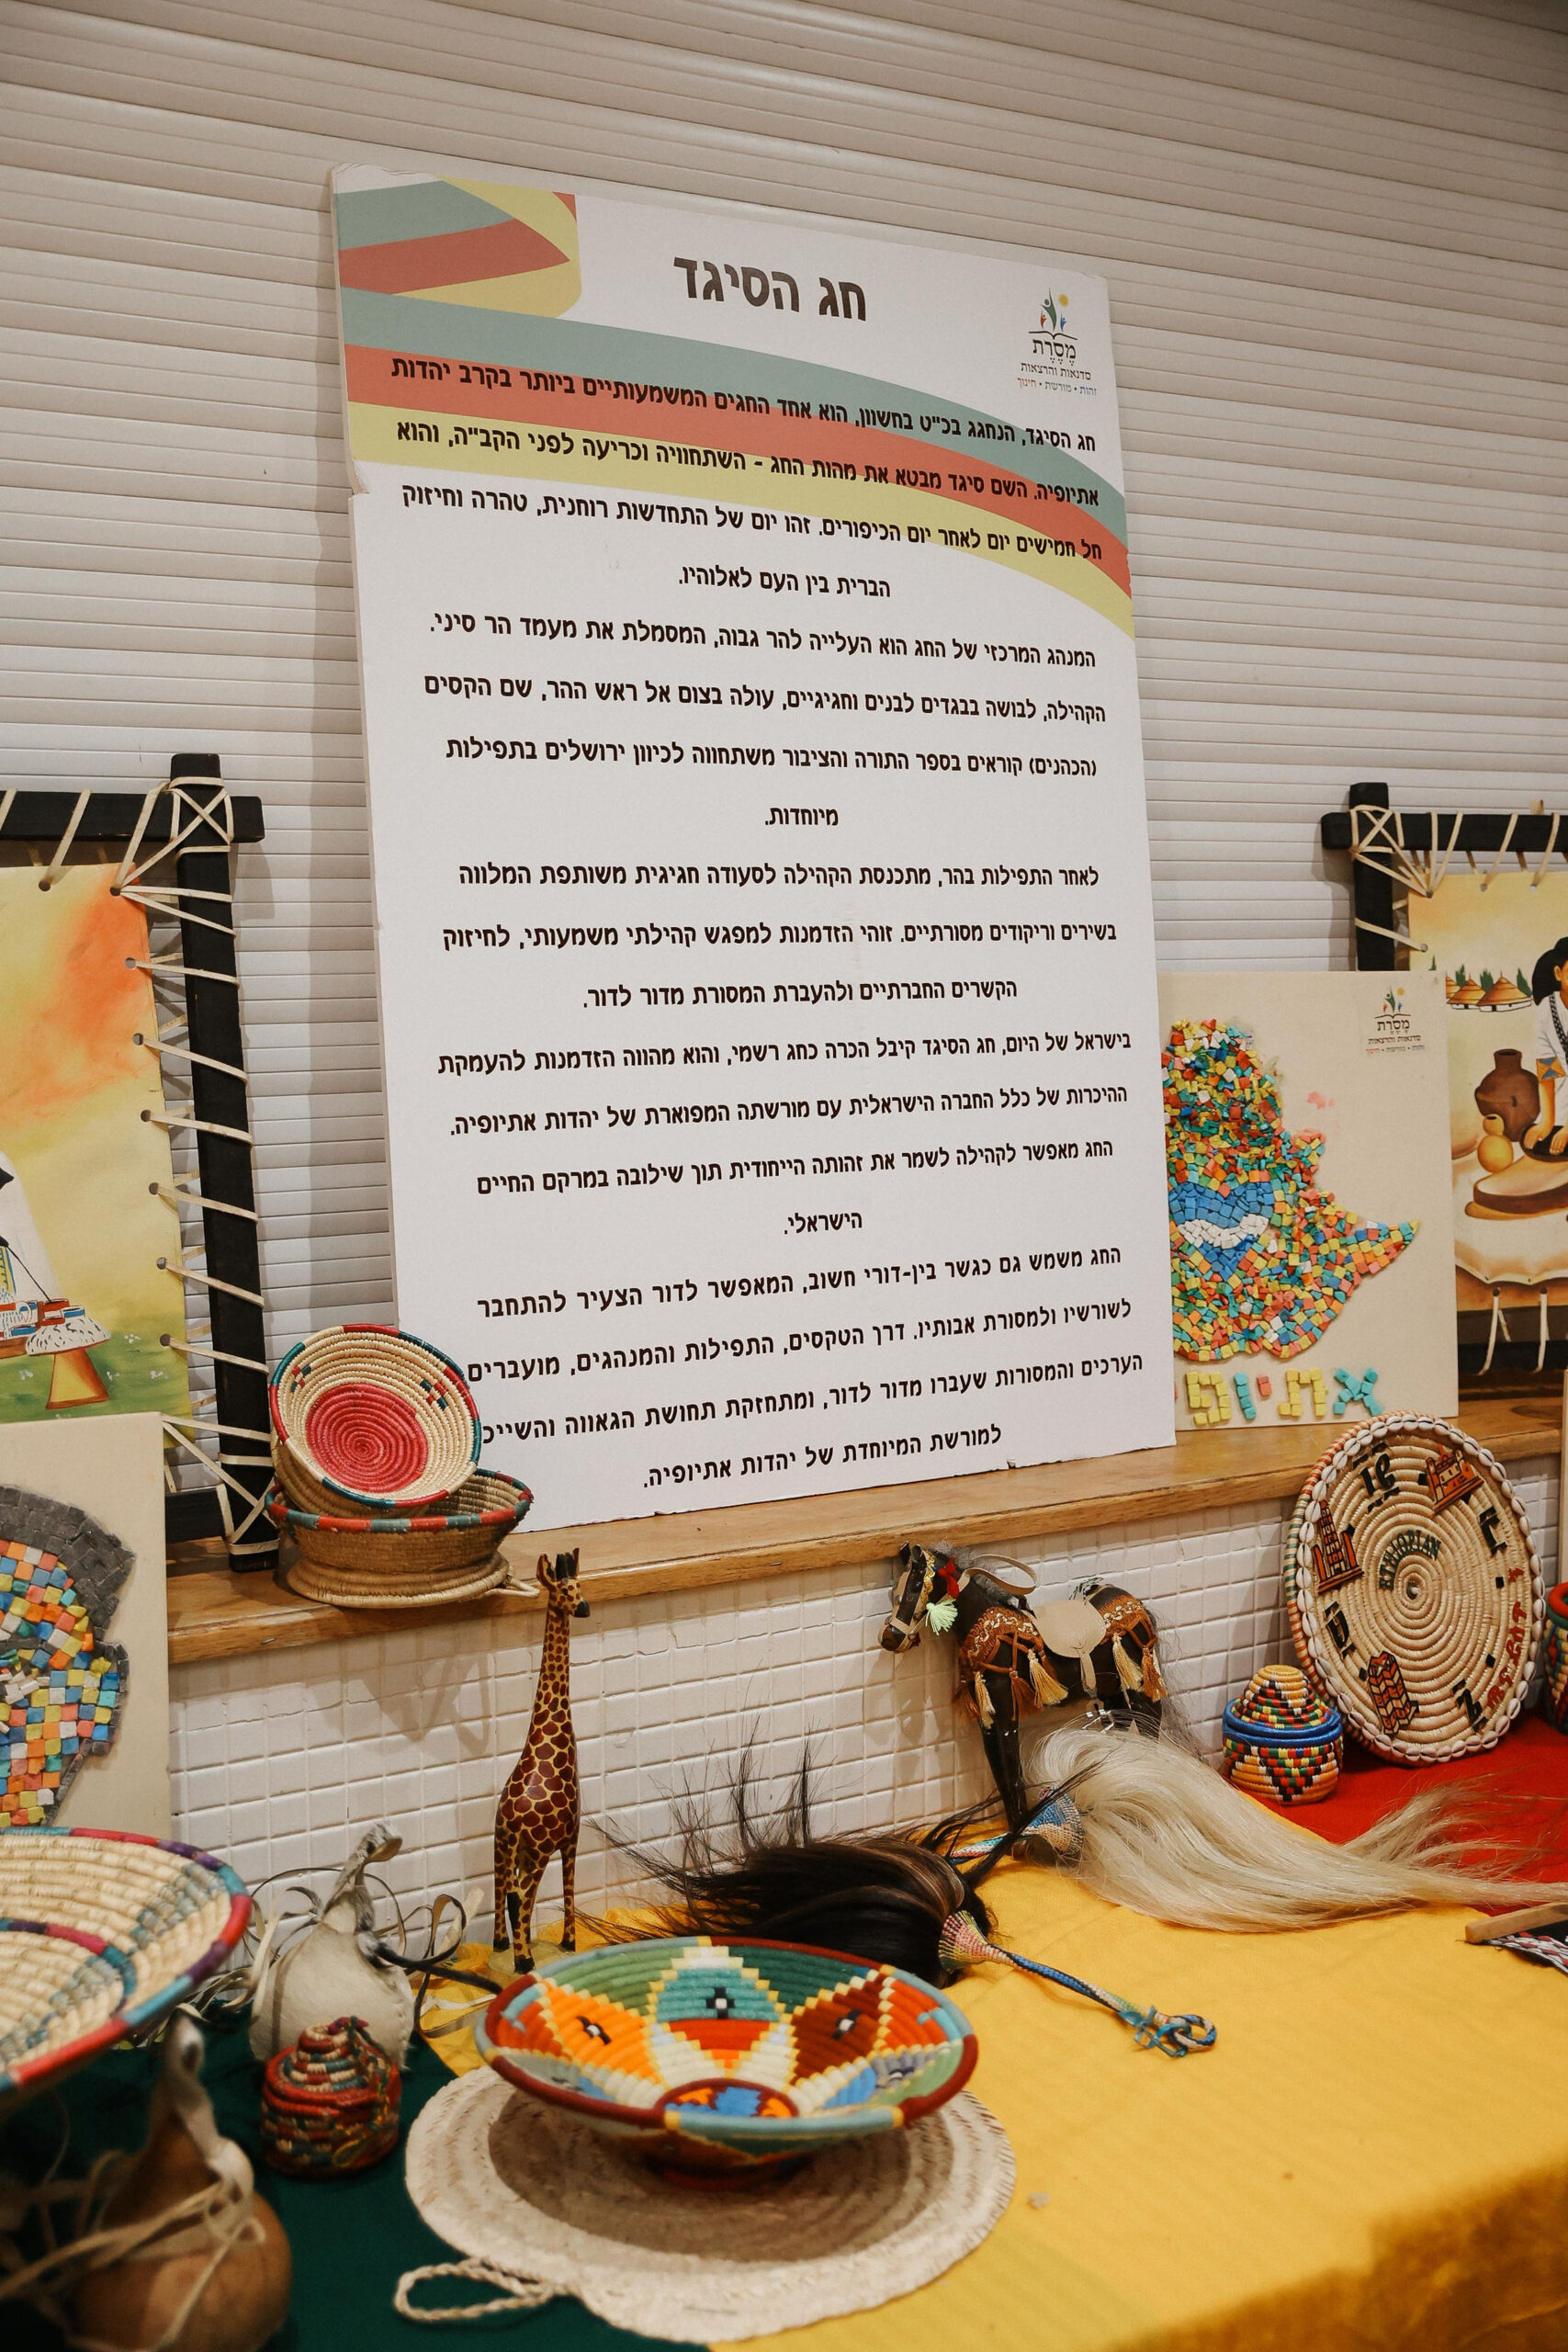 חג הסיגד
מָסֹרֶת
סדנאות והרצאות
זהות • מורשת • חינוך
חג הסיגד, הנחגג בכ"ט בחשוון, הוא אחד החגים המשמעותיים ביותר בקרב יהדות
אתיופיה. השם סיגד מבטא את מהות החג - השתחוויה וכריעה לפני הקב"ה, והוא
חל חמישים יום לאחר יום הכיפורים. זהו יום של התחדשות רוחנית, טהרה וחיזוק
הברית בין העם לאלוהיו.
המנהג המרכזי של החג הוא העלייה להר גבוה, המסמלת את מעמד הר סיני.
הקהילה, לבושה בבגדים לבנים וחגיגיים, עולה בצום אל ראש ההר, שם הקסים
(הכהנים) קוראים בספר התורה והציבור משתחווה לכיוון ירושלים בתפילות
מיוחדות.
לאחר התפילות בהר, מתכנסת הקהילה לסעודה חגיגית משותפת המלווה
בשירים וריקודים מסורתיים. זוהי הזדמנות למפגש קהילתי משמעותי, לחיזוק
הקשרים החברתיים ולהעברת המסורת מדור לדור.
בישראל של היום, חג הסיגד קיבל הכרה כחג רשמי, והוא מהווה הזדמנות להעמקת
ההיכרות של כלל החברה הישראלית עם מורשתה המפוארת של יהדות אתיופיה.
החג מאפשר לקהילה לשמר את זהותה הייחודית תוך שילובה במרקם החיים
הישראלי.
החג משמש גם כגשר בין-דורי חשוב, המאפשר לדור הצעיר להתחבר
לשורשיו ולמסורת אבותיו. דרך הטקסים, התפילות והמנהגים, מועברים
הערכים והמסורות שעברו מדור לדור, ומתחזקת תחושת הגאווה והשייכ
למורשת המיוחדת של יהדות אתיופיה.
מָסֹרֶת
סדנאות והרצאות
זהות • מורשת • חינוך
אתיופ
ETHIOPIAN